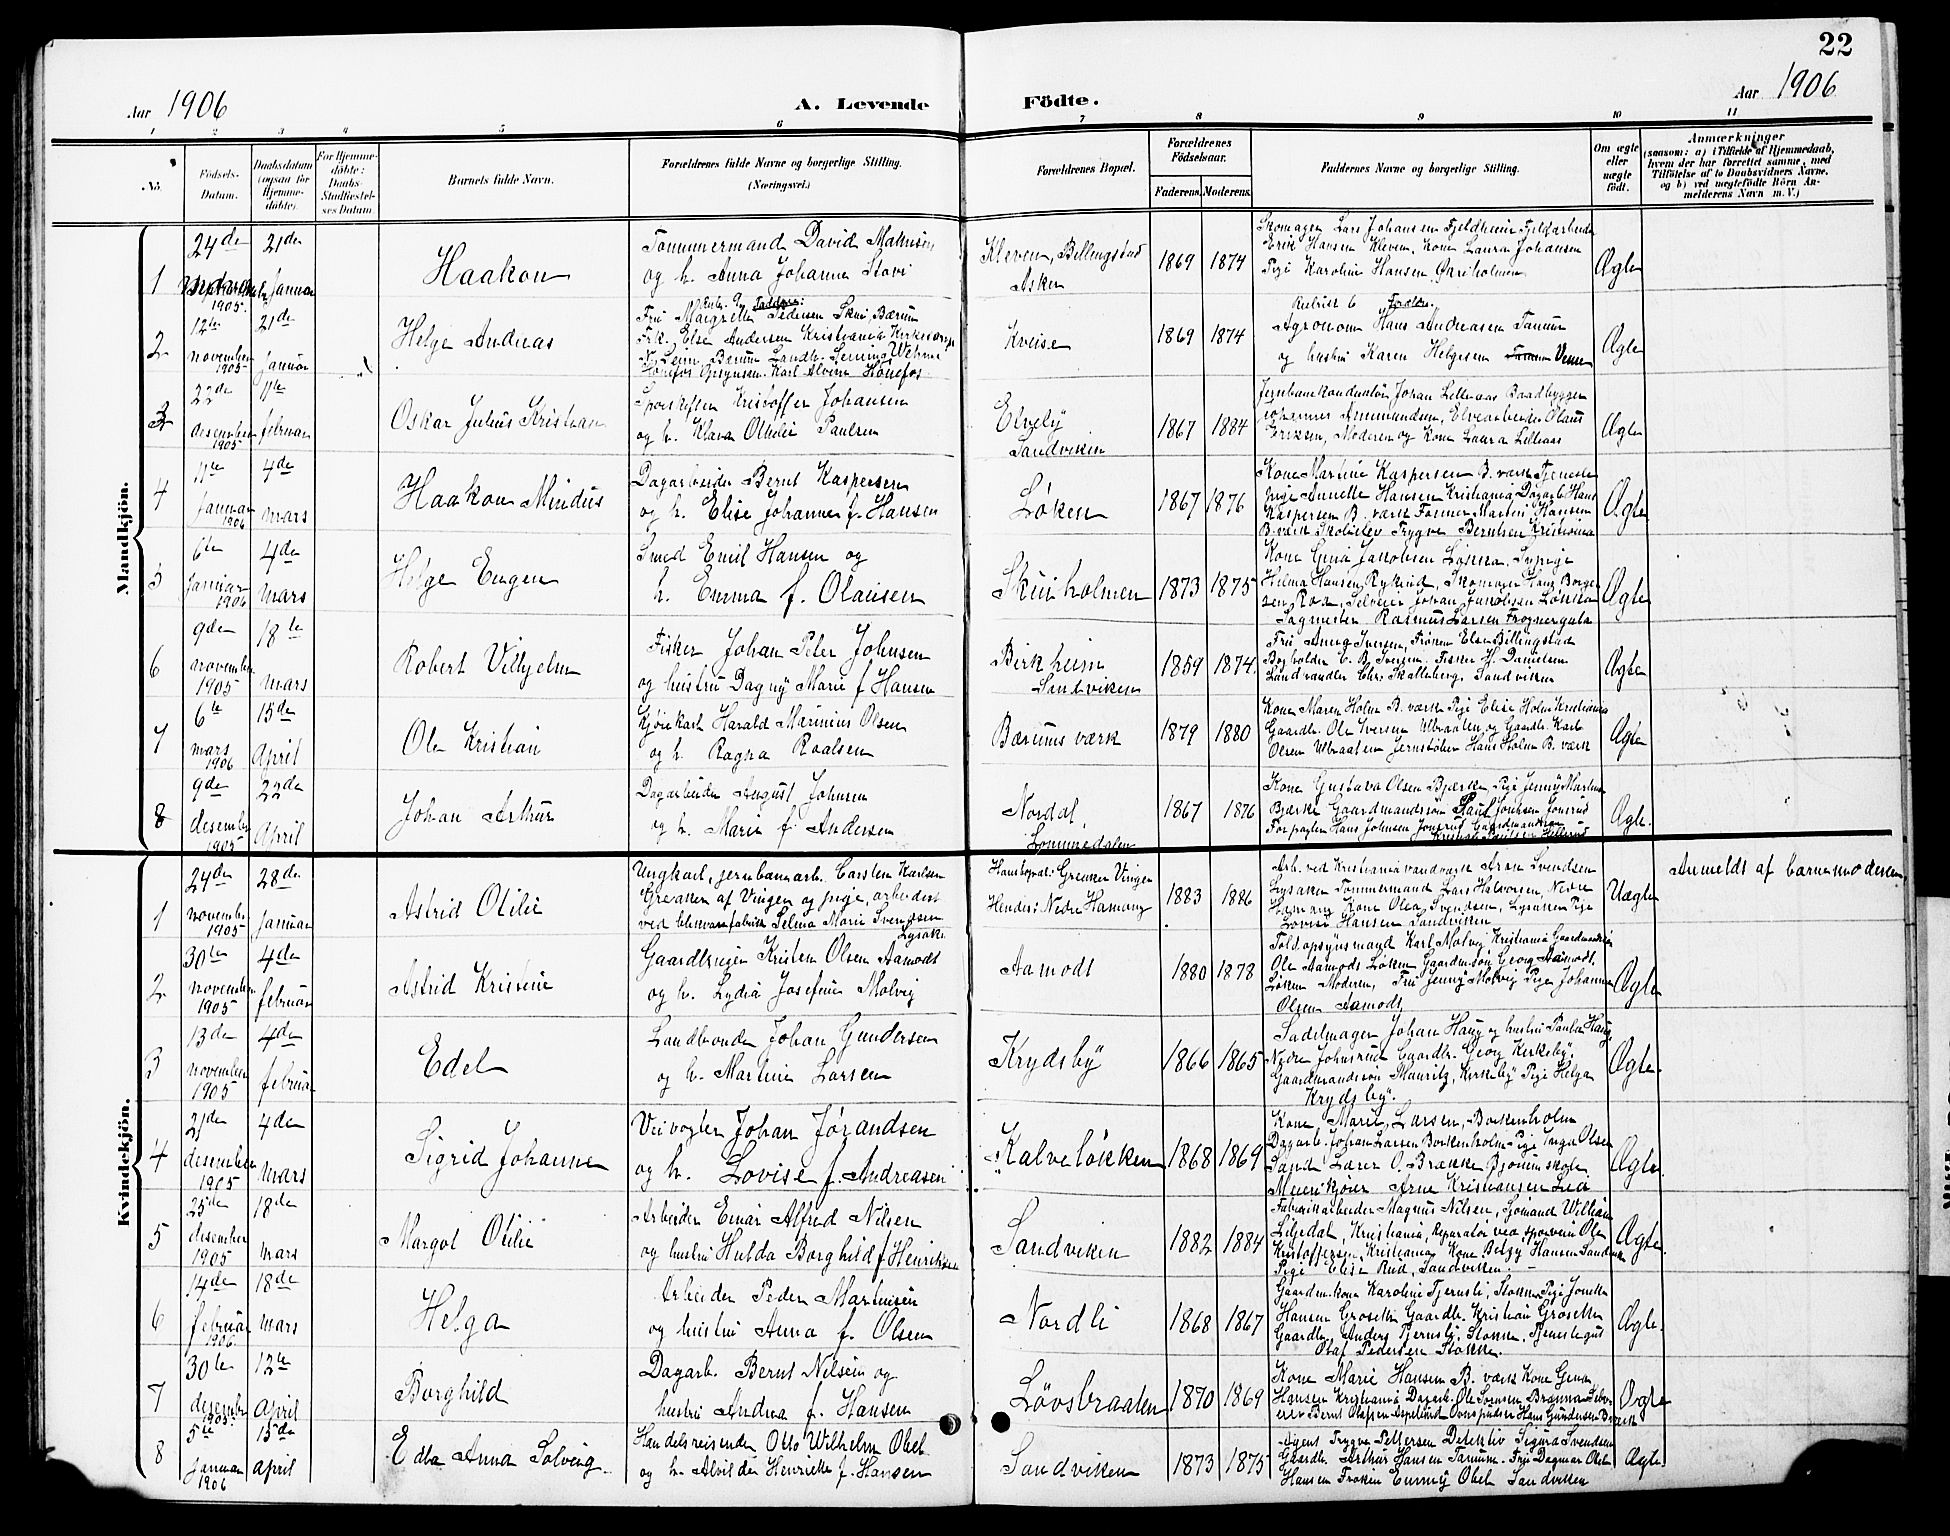 22
Aar 1906
A. Levende
Födte.
Aar 1906
1 2 3 4 5 6 7 8 9 10 11
No.
Födsels-Datum.
Daabsdatum (ogsaa for Hjemme-döbte).
For Hjemme-döbte: Daabs-Stadfæstel-ses Datum.
Barnets fulde Navn.
Forældrenes fulde Navne og borgerlige Stilling. (Næringsvei.)
Forældrenes Bopæl.
Forældrenes Födselsaar.
Faderens. Moderens.
Faddernes Navne og borgerlige Stilling.
Om ægte eller uægte födt.
Anmærkninger (saasom: a) i Tilfælde af Hjemmedaab, hvem der har forrettet samme, med Tilföielse af to Daabsvidners Navne, og b) ved uægtefödte Börn An-melderens Navn m. V.)
Mandkjön.
1 24de 1905 21de Januar
Haakon
Tømmermand David
og h. Anna Johanna
Kleven, Billingstad
Asker
1869 1874
Skomager Lars Johansen Fjeldheim
Erik Hansen Kleven, Kone Laura Johansen
Pige Karoline Hansen
Ægte
2 12te november 1905 21de Januar
Helge Andreas
Fadderne:
Fru Pedersen Skui, Bærum
Frk. Else Andersen Kristiania
Karl Hønefos
Kveise
1869 1874
Forældre.
Agronom Hans Andreasen Tanum
og hustru Karen Helgesen
Ægte
3 22de desember 1905 11te februar
Oskar Julius Kristian
Kristoffer Johansen
og h. Klara Othelie Paulsen
Elvely
Sandviken
1867 1884
Johan Lilleaas Baadbygger
Johannes Ammundsen, Elvearbeider Olaus
Eriksen, Moderen og Kone Laura Lilleaas
Ægte
4 11te Januar 1906 4de mars
Haakon Mindus
Dagarbeider Bernt Kaspersen
og h. Elise Johanne f. Hansen
Løken
1867 1876
Kone Martine Kaspersen B. værk Tjeneste
pige Annette Hansen Kristiania Dagarb. Hans
Kaspersen B. værk Hansen
B. værk Trygve Berntsen Kristiania
Ægte
5 6te Januar 1906 4de mars
Helge Eugen
Smed Emil Hansen og
h. Emma f. Olausen
Skuiholmen
1873 1875
Kone Gina Jakobsen Løkka, Sypige
Hilma Hansen Rykind, Skomager
Selveier Johan Jakobsen Løkka
Sagmester Rasmus Larsen Frognergata
Ægte
6 9de november 1905 18te mars
Robert Vilhjelm
Fisker Johan Peter Johnsen
og hustru Dagny Marie f Hansen
Birkheim
Sandviken
1859 1874
Fru Anna Iversen, Frøken Else Billingstad
C. B. Iversen, Fisker H. Danielsen
Chr. Skalleberg, Sandviken
Ægte
7 6te mars 1906 15de April
Ole Kristian
Kjørekarl Harald Marinius Olsen
og h. Ragna Roalsen
Bærums værk
1879 1880
Kone Maren Holm B. værk Pige Elise Holm Kristiania
Gaardbr. Ole Iversen og Gaardbr. Karl
Olsen Hans Holm B. værk
Ægte
8 9de desember 1905 22de April
Johan Arthur
Dagarbeider August Johnsen
og h. Marie f. Andersen
Nordal,
Lommedalen
1867 1876
Kone Gustava Olsen Bjærke, Pige Jenny
Bjerke Gaardmandssøn Paul Johnsen Jonsrud
Forpagter Hans Johnsen Jonsrud Gaardmandssøn
Ægte.
Kvindekjön.
1 24de november 1905 28de Januar
Astrid Otilie
Ungkarl, jernbanearb. Carsten Karlsen
Grevaker af Vingen og pige, arbeiderst
Selma Marie Svendsen
Lysaker
Hans bopæl: Vinger
Hendes: Nedre Hamang
1883 1886
Arb. ved Kristiania vandværk Aron Svendsen
Lysaker Tømmermand Lars Halvorsen, Nedre
Hamang Kone Olea Svendsen, Lysaker Pige
Lovise Hansen Sandviken
Uægte
Anmeldt af barnemoderen
2 30te november 1905 4de februar
Astrid Kristine
Gaardbruger Kristen Olsen Aamodt
og h. Lydia Josefine Molvig
Aamodt
1880 1878
Toldopsynsmand Karl Molvig Kristiania
Ole Aamodt Løken Gaardmssøn Georg Aamodt
Løken Moderen, Fru Jenny Molvig Pige Johanne
Olsen Aamodt
Ægte
3 13de november 1905 4de februar
Edel
Landhandler Johan Gundersen
og h. Martine Larsen
Krydsby
1866 1865
Sadelmager Johan Haug og hustru Paula Haug
Nedre Johnsrud Gaardbr. Georg Kirkeby.
Gaardmandssøn Mauritz, Kirkeby Pige Helga
Krydsby.
Ægte.
4 21de desember 1905 4de mars
Sigrid Johanne
Veivogter Johan Jørandsen
og h. Lovise f. Andreasen
Kalveløkken
1868 1869
Kone Marie Larsen, Borkenholm
Dagarb. Johan Larsen Borkenholm Pige Inga Olsen
Lærer O. Brække Bjørum skole
Meierikjører Arne Kristiansen
Ægte.
5 25de desember 1905 18de mars
Margot Otilie
Arbeider Einar Alfred Nilsen
og hustru Hulda Borghild f Henriksen
Sandviken
1882 1884
Fabrikarbeider Magnus Nilsen, Sjømand William
Liljedal, Kristiania, Reparatør ved sporvein Ole
Kristoffersen, Kristiania, Kone Betzy Hansen Sandviken
Pige Elise Rud, Sandviken.
Ægte.
6 14de februar 1906 18de mars
Helga
Arbeider Peder Martinsen
og hustru Anna f. Olsen
Nordli
1868 1867
Gaardm. kone Karoline Tjernsli, Stokker Pige
Hansen Grosetter Gaardbr. Kristian Grosetter
Gaardbr. Anders Tjernsli, Stokke, Tjenestegut
Olaf Pedersen Stokke.
Ægte.
7 30te desembr. 1905 12te April
Borghild
Dagarb. Bernt Nilsen og
hustru Andrea f. Hansen
Løvsbraaten
1870 1869
Kone Marie Hansen B. værk Kone Gina
Hansen Kristiania Dagarb. Ole
Bernt Olafsen Hans Gundersen B. værk
Ægte
8 5te Januar 1906 15de April
Edla Anna Solveig
Handelsreisende Otto Wilhelm Obel
og h. Alvilde Henrikke f. Hansen
Sandviken
1873 1875
Agent Trygve Pettersen Detektiv Sigurd Svendsen
Gaardbr. Arthur Hansen Tanum, Fru Dagmar Obel
Hansen Frøken Emmy Obel Sandviken
Ægte